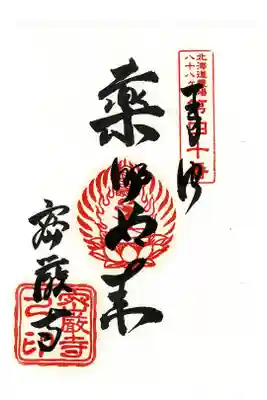 北海道霊場
八十八ヶ所
第四十番
奉拝
薬師如来
密厳寺
密巌寺
之印